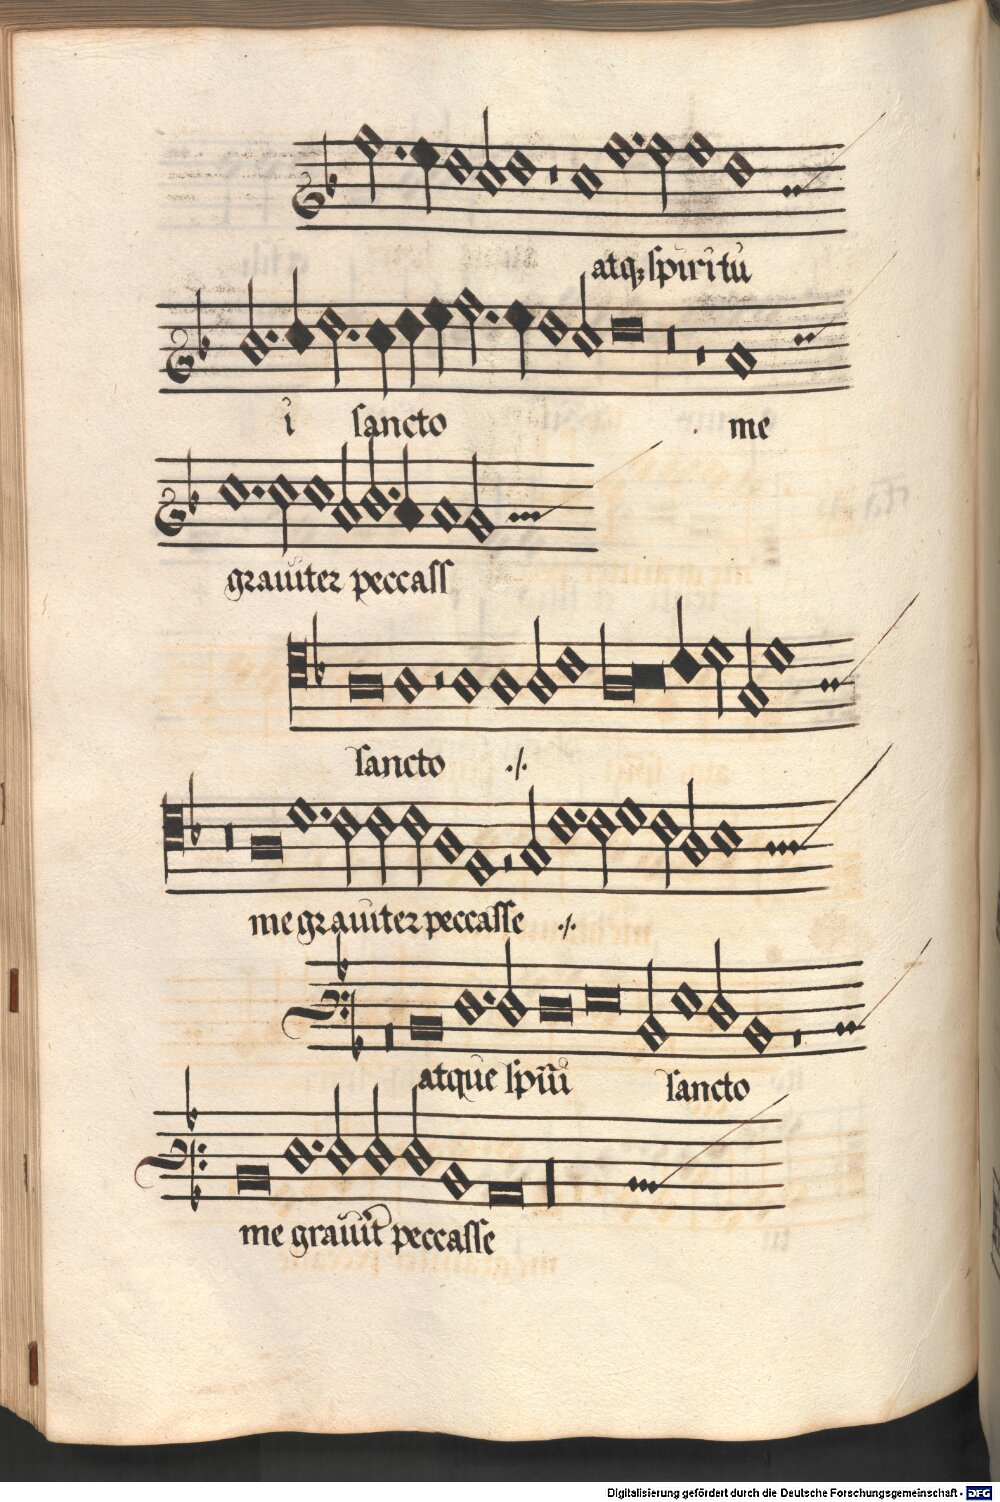 atq; spiritu
i sancto me
grauiter peccass
sancto ·/·
me grauiter peccasse ·/·
atque spu̅i sancto
me grauit peccasse
Digitalisierung gefördert durch die Deutsche Forschungsgemeinschaft - DFG